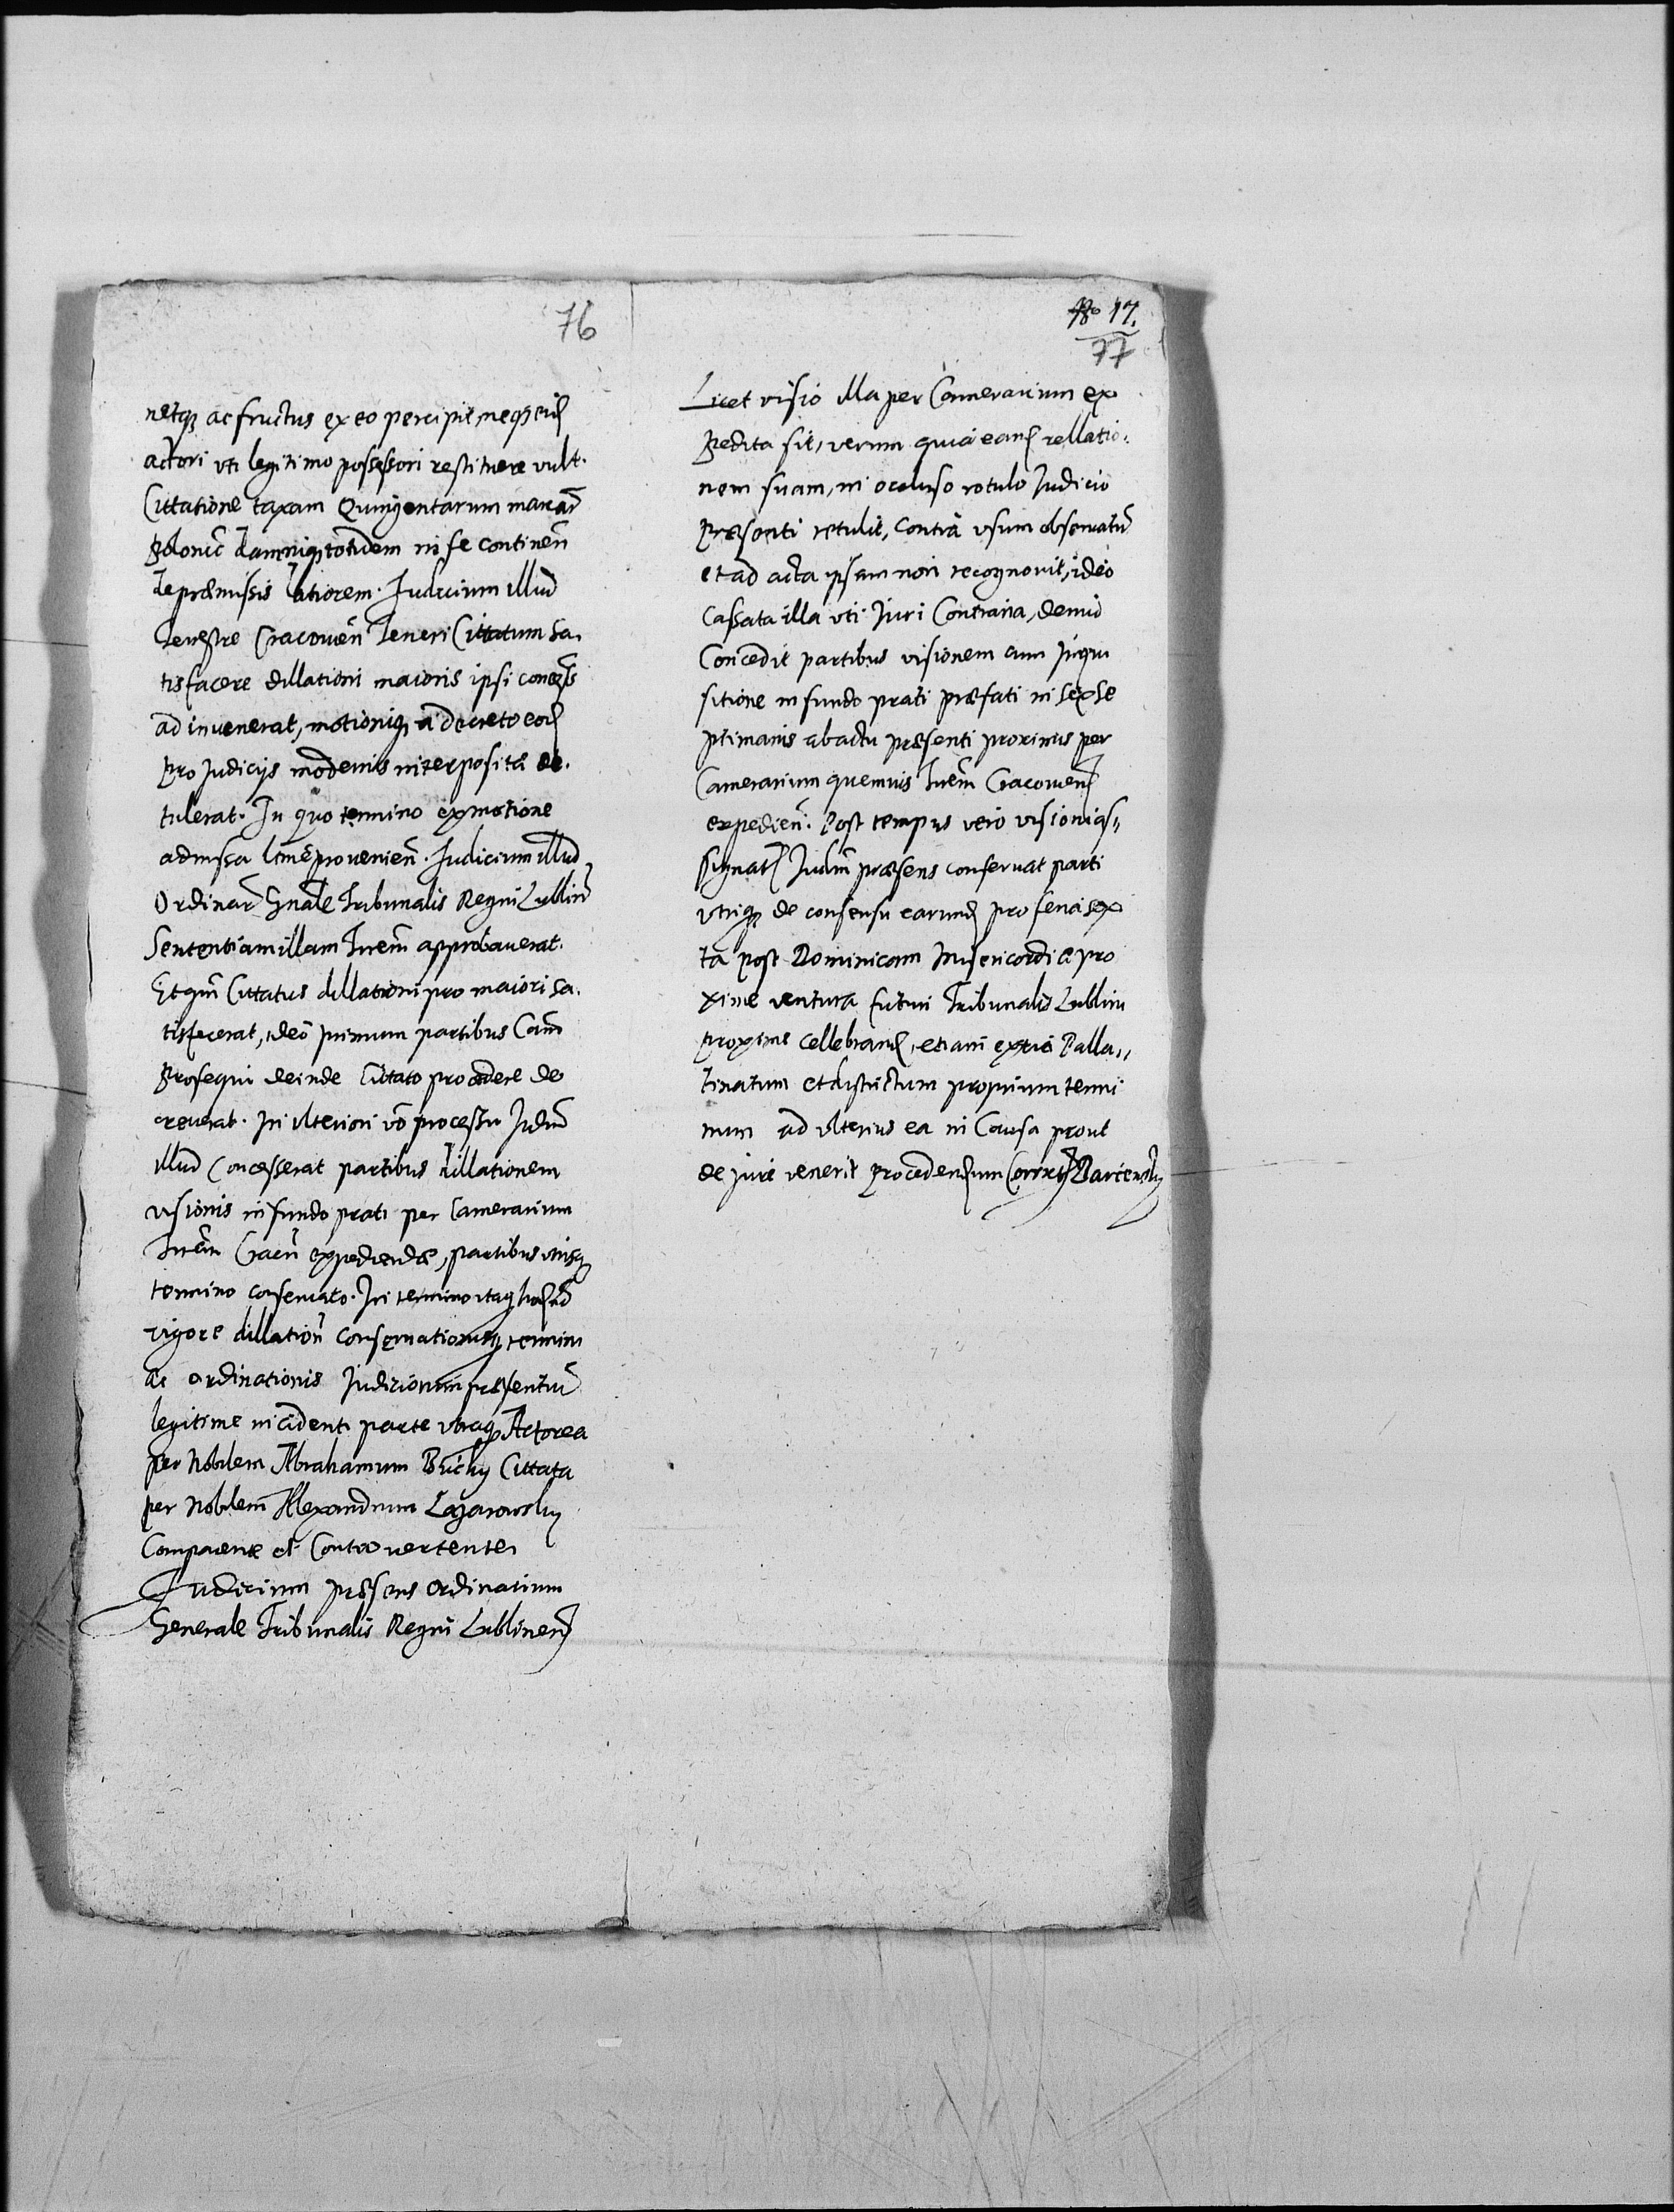 76
netq3 ac fructus ex eo percipit, neq3 eid
actori vti legitimo possessori restituere vult.
Cittatione taxam Quingentarum marcar
Polonic damniq3 totidem in se continen
de præmissis latiorem. Iudicium illud
Terrestre Cracovien Teneri Cittatum sa.
tisfacere dillationi maioris ipsi concess
ad invenerat, motioniq3 a decreto eod
pro Judicijs modernis interposita de.
tulerat. In quo termino ex motione
admissa ltme provenien. Judicium illud
Ordinar Gnale Tribunalis Regni Lublin
Sententiam illam Trem approbaverat.
Et qm Cittatus dillationi pro maiori sa.
tisfecerat, ideo primum partibus Cam
Prosequi deinde Cittato procedere de
creverat. In vlteriori vo processu Judm
illud Concesserat partibus dillationem
visionis in fundo prati per Camerarium
Trem Cracn expediendæ, partibus vtrisq3
termino conservato. In termino itaq3
vigore dillation conservationisq3 termini
ac ordinationis Judiciorum præsentiu
legitime incidenti parte vtraq3 Actorea
per Nobilem Abrahamum Bucky Cittata
per Nobilem Alexandrum Lazarowsky
Comparente et Controvertente.
Judicium præsens Ordinarium
Generale Tribunalis Regni Lublinen
No 17.
77
Licet visio illa per Camerarium ex
pedita sit, verum quia eand rellatio:
nem suam, in ocluso rotulo Judicio
Præsenti retulit, Contra vsum observatu
et ad acta ipsam non recognovit, ideo
Cassata illa vti Juri Contraria, denuo
Concedit partibus visionem cum Inqui
sitione in fundo prati præfati in sex se
ptimanis ab actu præsenti proximis per
Camerarium quemvis Trem Cracovien
expedien. Post tempus vero visioni as"
signat Judm præsens conservat parti
vtriq3 de consensu earund pro feria sex
ta post Dominicam Misericordiæ pro
xime ventura futuri Tribunalis Lublin
proxime Cellebrand, etiam extra Palla"
tinatum et districtum proprium termi
num ad vlterius ea in Causa prout
de jure venerit procedendum Correxit